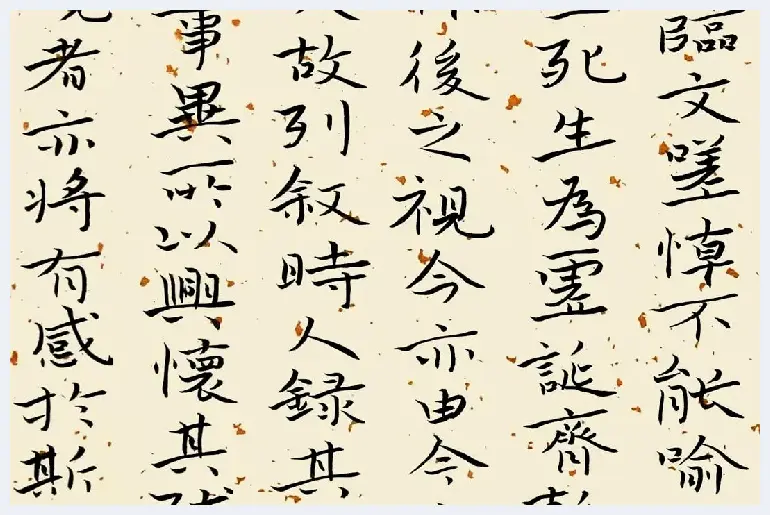 臨文嗟悼不能喻
一死生為虛誕齊
後之視今亦由今
故列叙時人録其
事異所以興懷其
者亦将有感於斯